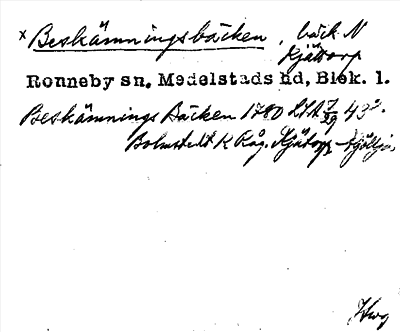 x Beskämningsbäcken, bäck N
Kjättorp
Ronneby sn, Medelstads hd, Blek. l.
Beskämnings Bäcken 1780 LSA 7/29 43².
Bolmstedt K Råg. Kjätorp
Hwg